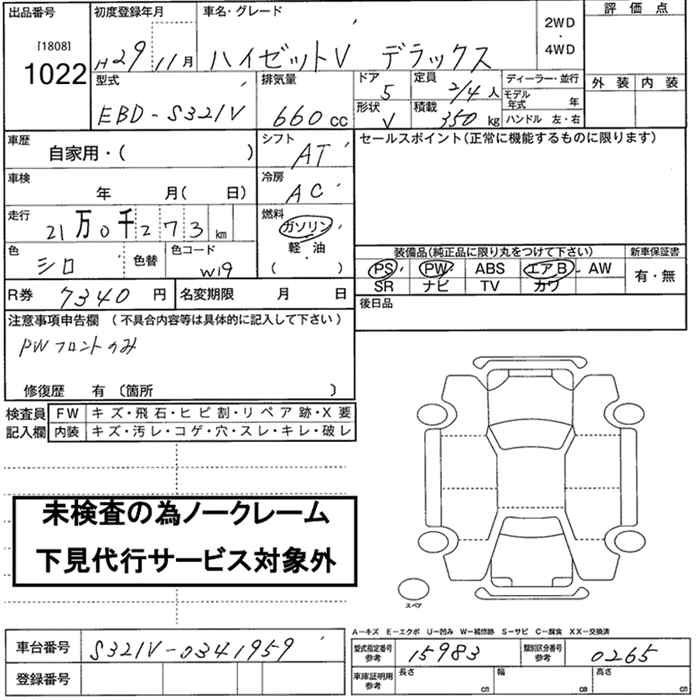 出品番号 初度登録年月 車名・グレード 2WD・4WD 評価点
[1808]
1022 H29年11月 ハイゼットV デラックス 外装 内装
型式 排気量 ドア 定員 ディーラー・並行
EBD-S321V 660cc 5 2/4人 モデル年式 年
形状 積載 ハンドル 左・右
V 350kg
車歴 シフト セールスポイント(正常に機能するものに限ります)
自家用・( ) AT
車検 冷房
年 月( 日) AC
走行 燃料
21万0千273km ガソリン
軽・油
( )
色 色替 色コード 装備品(純正品に限り丸をつけて下さい) 新車保証書
シロ W19 PS PW ABS エアB AW 有・無
SR ナビ TV カワ
R券 7340円 名変期限 月 日 後日品
注意事項申告欄(不具合内容等は具体的に記入して下さい)
PWフロントのみ
修復歴 有(箇所 )
検査員 FW キズ・飛石・ヒビ割・リペア跡・X要
記入欄 内装 キズ・汚レ・コゲ・穴・スレ・キレ・破レ
未検査の為ノークレーム
下見代行サービス対象外
スペア
A-キズ E-エクボ U-凹み W-補修跡 S-サビ C-腐食 XX-交換済
車台番号 S321V-0341959 型式指定番号 参考 15983 類別区分番号 参考 0265
登録番号 車庫証明用 参考 長さ cm 幅 cm 高さ cm